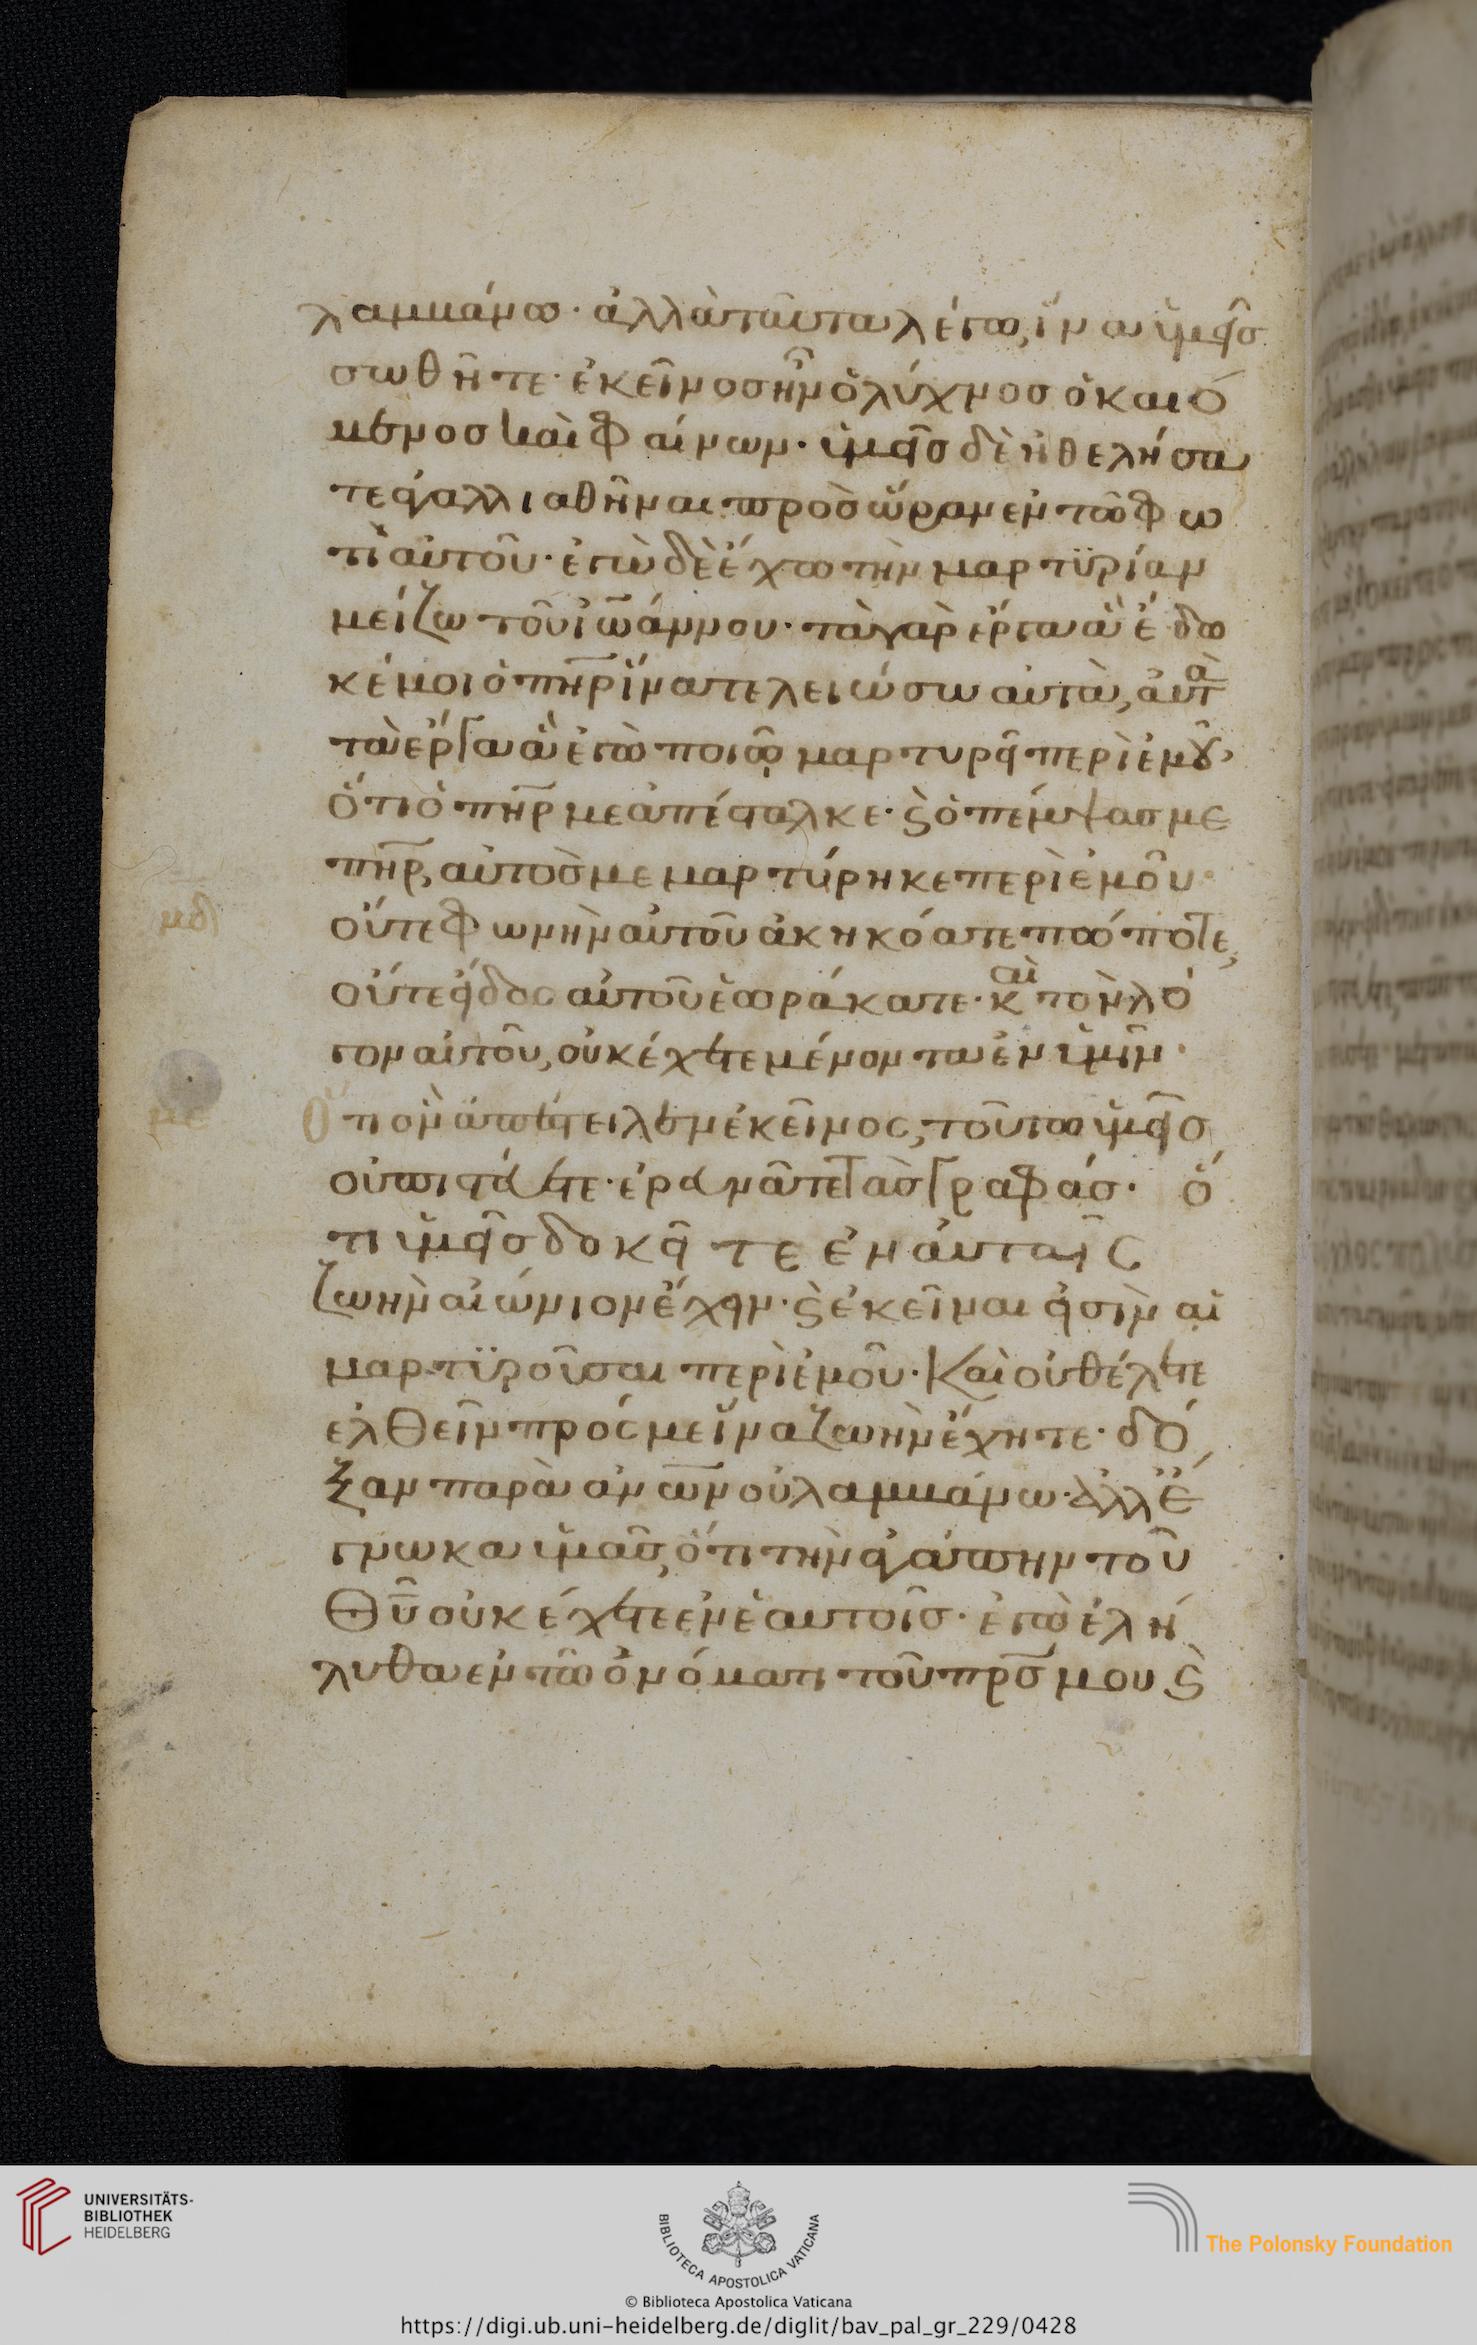 λαμβάνω· ἀλλὰ ταῦτα λέγω, ἵνα ὑμεῖσ
σωθῆτε· ἐκεῖνοσ ἦν ὁ λύχνοσ ὁ καιό
μενοσ καὶ φαίνων· ὑμεῖσ δὲ ἠθελήσα
τε ἀγαλλιαθῆναι πρὸσ ὥραν ἐν τῶ φω
τὶ αὐτοῦ· ἐγὼ δὲ ἔχω τὴν μαρτϋρίαν
μείζω τοῦ ἰω̅άννου· τὰ γὰρ ἔργα ἃ ἔδω
κέ μοι ὁ πη̅ρ ἵνα τελειώσω αὐτὰ, αὐτὰ
τὰ ἔργα ἃ ἐγὼ ποιῶ, μαρτυρεῖ περὶ ἐμοῦ,
ὅτι ὁ πη̅ρ με ἀπέσταλκε· ϗ ὁ πέμψασ με
πη̅ρ, αὐτὸσ μεμαρτύρηκε περὶ ἐμοῦ·
μδ
οὔτε φωνὴν αὐτοῦ ἀκηκόατε πώποτε,
οὔτε εἶδος αὐτοῦ ἑωράκατε· καὶ τὸν λό
γον αὐτοῦ, οὐκ ἔχετε μένοντα ἐν ὑμῖν·
με
Ὅτι ὃν ἀπέστειλεν ἐκεῖνος, τούτω ὑμεῖσ
οὐ πιστεύετε· ἐραυνᾶτε τὰσ γραφάσ· ὅ
τι ὑμεῖσ δοκεῖτε ἐν αὐταῖς
ζωὴν αἰώνιον ἔχειν· ϗ ἐκεῖναι εἰσὶν αἱ
μαρτϋροῦσαι περὶ ἐμοῦ· Καὶ οὐ θέλετε
ἐλθεῖν πρός με ἵνα ζωὴν ἔχητε· δό
ξαν παρὰ ἀν̅ω̅ν οὐ λαμβάνω· ἀλλ' ἔ
γνωκα ὑμᾶς, ὅτι τὴν ἀγάπην τοῦ
Θυ̅ οὐκ ἔχετε ἐν ἑαυτοῖσ· ἐγὼ ἐλή
λυθα ἐν τῶ ὀνόματι τοῦ πρ̅σ̅ μου ϗ
UNIVERSITÄTS-
BIBLIOTHEK
HEIDELBERG
BIBLIOTECA APOSTOLICA VATICANA
The Polonsky Foundation
© Biblioteca Apostolica Vaticana
https://digi.ub.uni-heidelberg.de/diglit/bav_pal_gr_229/0428